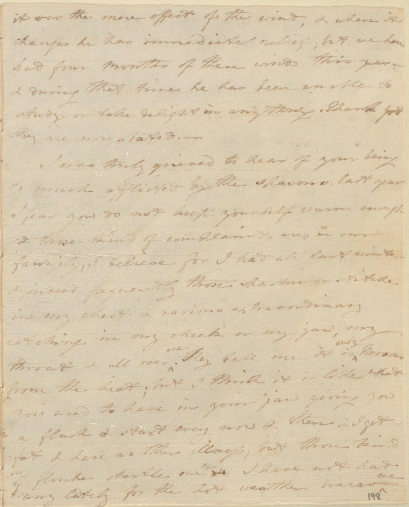 it was the mere effect of the wind, & when it
changes he has immediate relief, but we have
had four months of these winds this year
& during that time he has been unable to
study or take delight in any thing. Thank god
they are now abated.—
I was truly grieved to hear of your being
so much afflicted by the spasms last year
I fear you do not keep yourself warm enough
& those kind of complaints are in our
family, I believe for I had all last winter
& indeed frequently those spasms or stitches
in my chest & various extraordinary
catchings in my cheeks or my jaw, my
throat & all over. They tell me it is only nervous
from the heat, but I think it is like what
you used to have in your jaw giving you
a flush & start every now & then. I get
fat & have no other illness, but those kind
of flushes startles one. I have not had
any lately for the hot weather
198